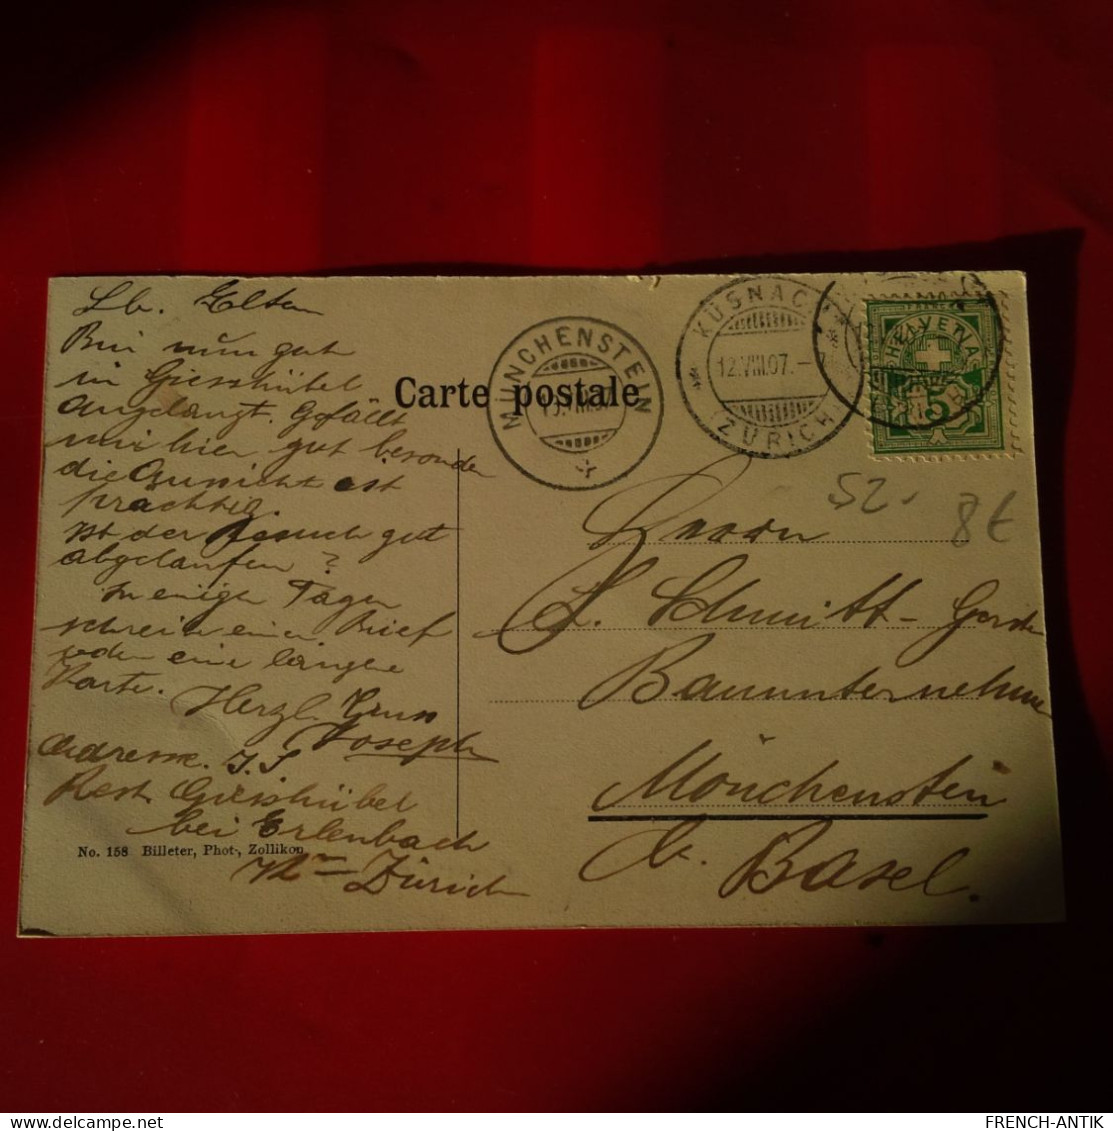 Lb. Eltern
Bin nun gut
in Giesshübel
angelangt. Gefällt
mir hier gut besonders
die Aussicht ist
prächtig.
Ist der Besuch gut
abgelaufen?
In einigen Tagen
schreibe einen Brief
oder eine längere
Karte.
Herzl. Gruss
Joseph
Adresse. J. S
Rest. Giesshübel
bei Erlenbach
Kt Zürich
No. 158 Billeter, Phot., Zollikon
Carte postale
MÜNCHENSTEIN
KÜSNACHT
12.VIII.07.-
(ZÜRICH)
HELVETIA
5
52.-
8€
Herrn
Schmitt-
Bauunternehmer
Mönchenstein
b. Basel.
FRENCH-ANTIK